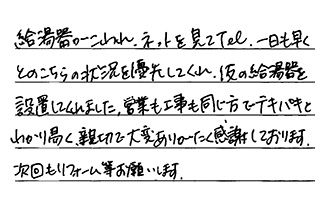 給湯器がこわれ、ネットを見てTel、一日も早く
とのこちらの状況を優先してくれ、仮の給湯器を
設置してくれました。営業も工事も同じ方でテキパキと
わかり易く、親切で大変ありがたく感謝しております。
次回もリフォーム等お願いします。